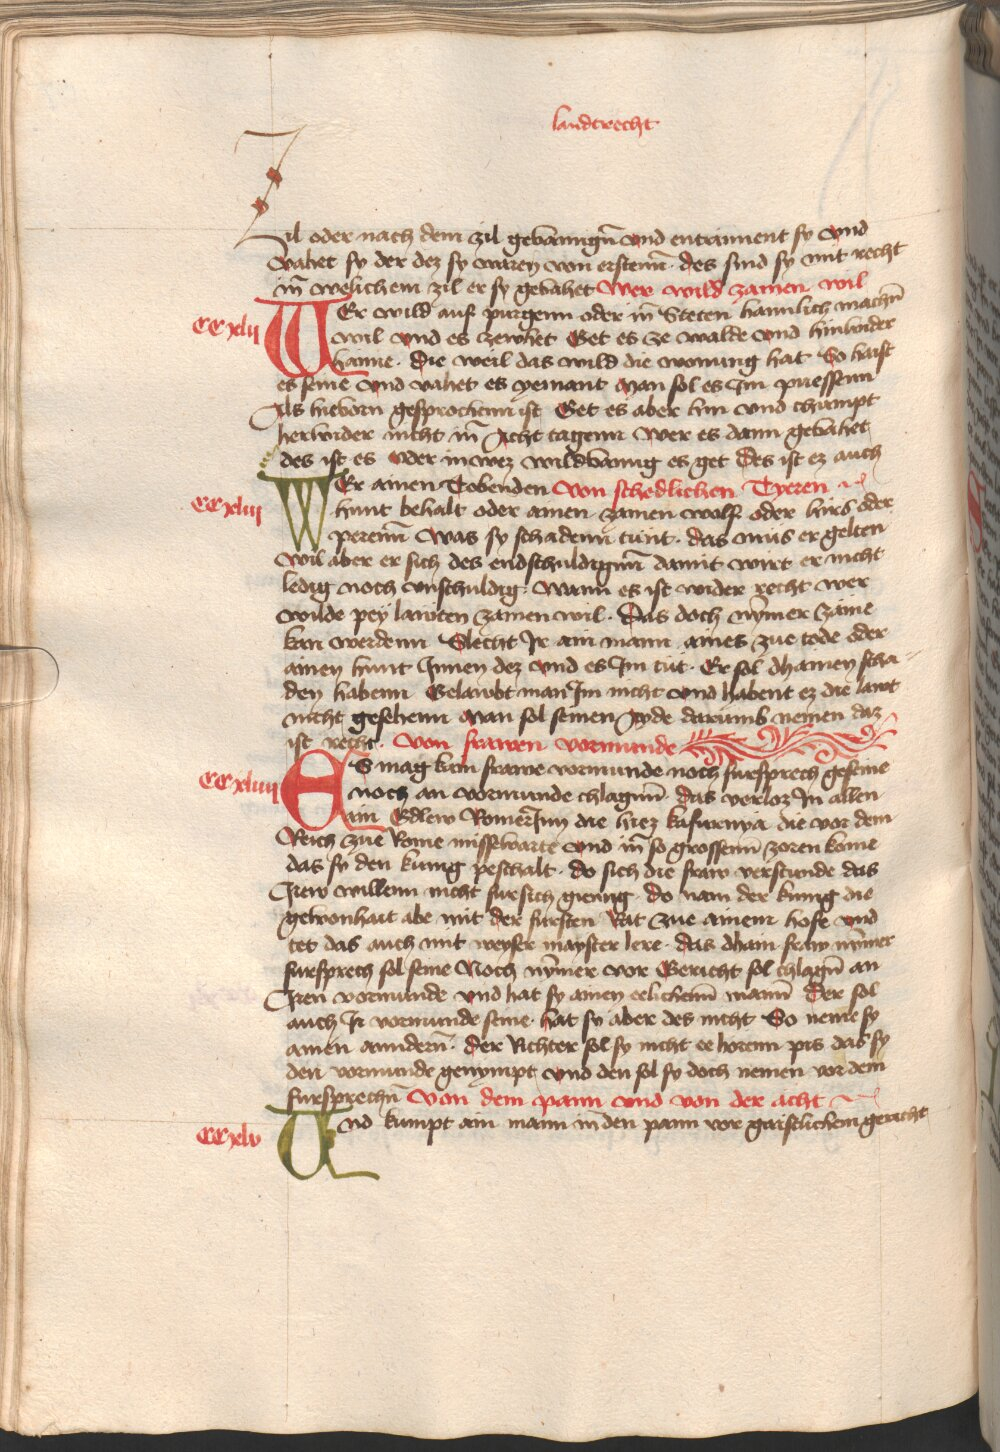 landtrecht
Zil oder nach dem zil gevanngn̄ vnd entrinnent sy vnd
vahet sy der dez sy waren von ersteem̄. des sind sy mit recht
in̄ welichem zil er sy gevahet Wer wild zamen wil
CCxlij
WEr wild auf purgenn oder in̄ Steten hamlich machn̄
wil vnd es zewhet Get es ze walde vnd hinwider
hanne. Die weil das wild die wonung hat So haist
es seine vnd vahet es yemant Man sol es Im puessenn
Als hievorn gesprochenn ist Get es aber hin vnd chumpt
herwider nicht in̄ Acht tagenn Wer es dann gevahet
des ist es Oder in wez wildvanng es get Des ist ez auch
CCxliij
WEr ainen Tobenden Von schedlichen Tyeren
hunt behalt oder ainen zamen wolf oder hirs oder
perenn̄ Was sy schadenn tunt. das mus er gelten
wil aber er sich des endschuldigenn̄ damit wirt er nicht
ledig noch vnschuldig. Wann es ist wider recht wer
wilde pey lawten zamen wil. Das doch nȳmer zame
kan werdenn Slecht Ir ain mann aines zue tode oder
ainen hunt Innen dez vnd es Im tut. Er sol dhainen scha
den habenn Gelawbt man Im nicht vnd habent ez die lawt
nicht gesehenn Man sol seinen Ayde darumb nemen daz
ist recht. Von frawen vormunde
CCxliiij
ES mag kain frawe vormunde noch fursprech geseine
noch an vormunde chlagenn̄. das verlos In allen
ain Edlew Romer̄Inn die hiez kafurnya die vor dem
Reich zue Rome missewarte vnd in̄ so grossenn zoren kome
das sy den kunig peschalt. do sich die fraw verstunde das
Irew willenn nicht fursich gieng. do nam der kunig die
gewonhait abe mit der fursten Rat zue ainem hofe vnd
tet das auch mit weyser mayster lere. das dhain fraw nȳmer
fursprech sol seine Noch nȳmer vor Gericht sol chlagn̄ an
Iren vormunde vnd hat sy ainen eelichenn̄ mann̄ Der sol
auch Ir vormunde seine. hat sy aber des nicht So neme sy
ainen anndern̄. Der Richter sol sy nicht ee horenn pis das sy
den vormunde genympt vnd den sol sy doch nemen vor dem
fursprechn̄ Von dem pann vnd von der acht
CCxlv
Vnd kumpt ain mann in̄ den pann vor gaistlichem gericht